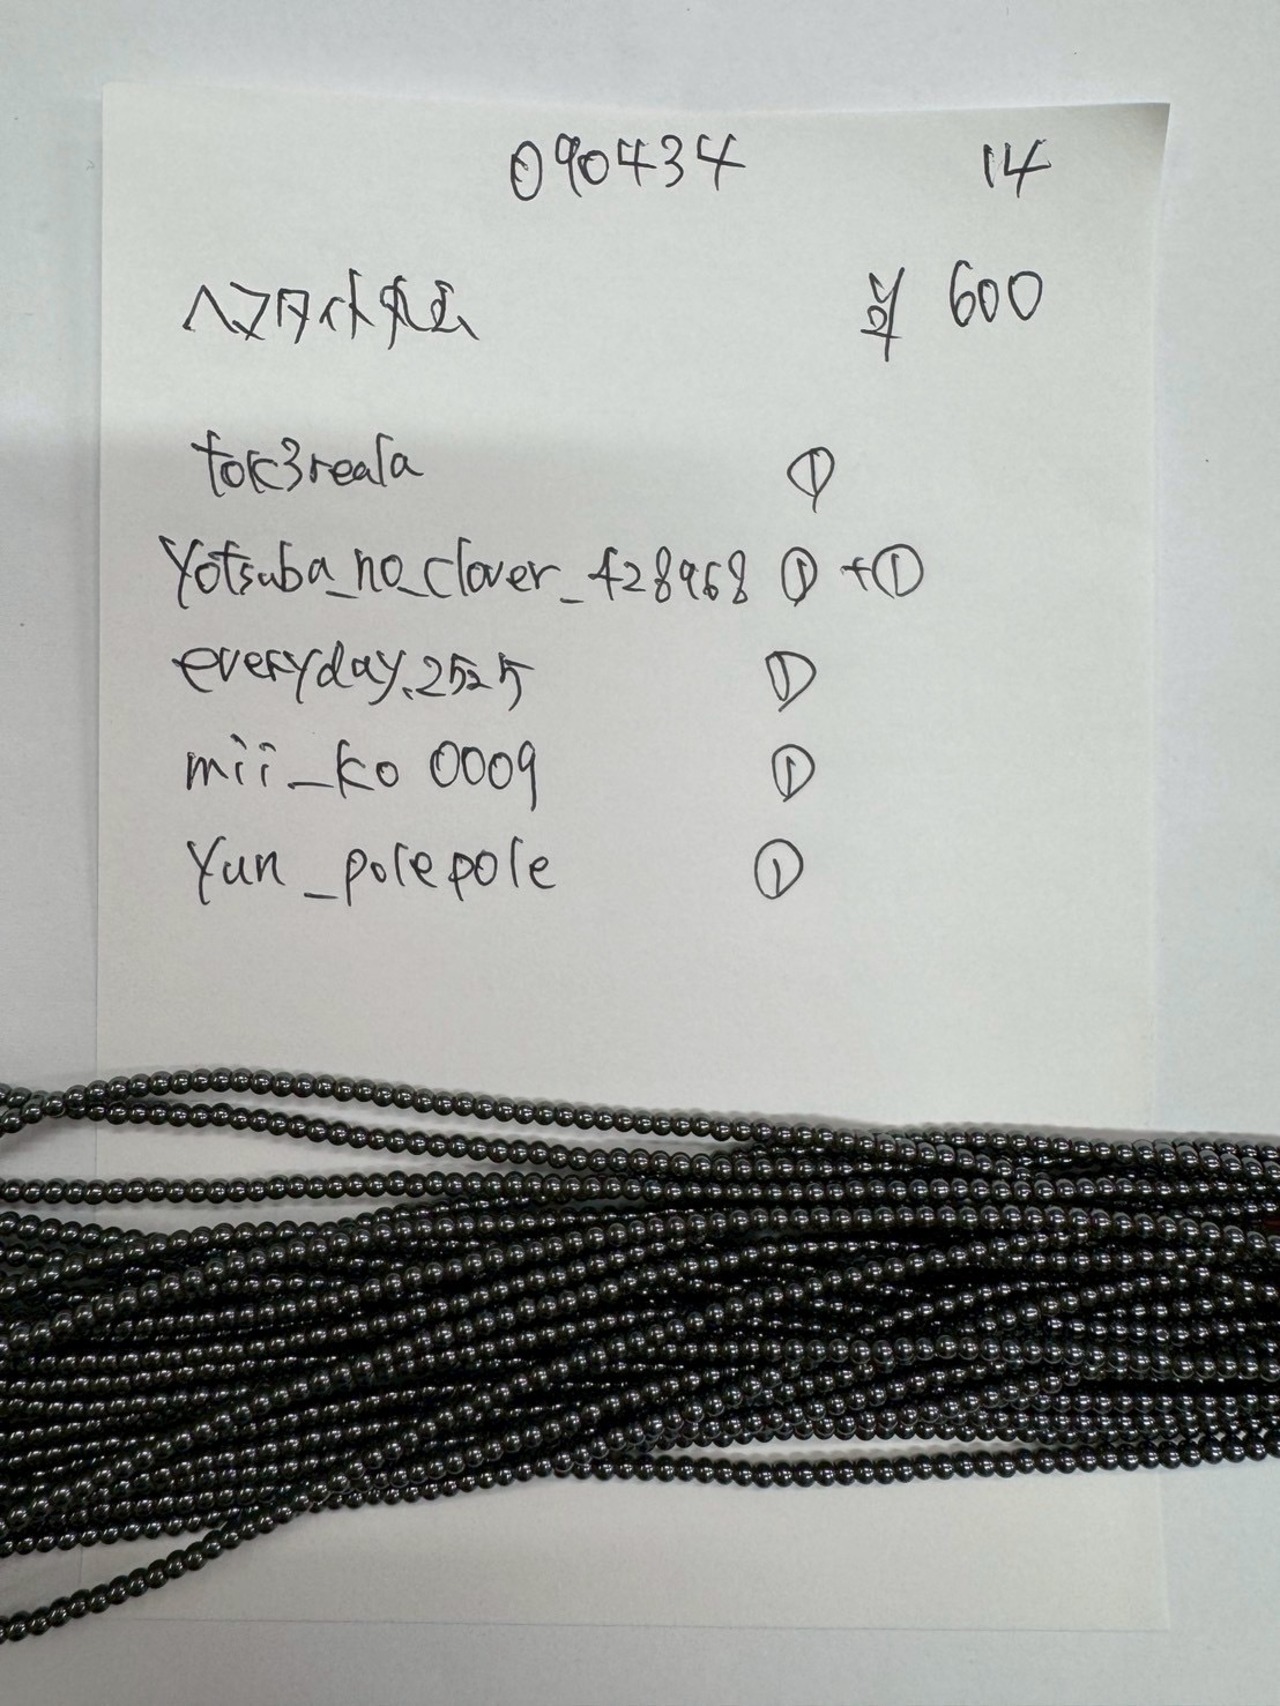 090434 14
ヘマタイト丸玉 ¥600
tok3reala ①
Yotsuba_no_clover_428968 ①+①
everyday.2525 ①
mii_ko 0009 ①
Yun_polepole ①